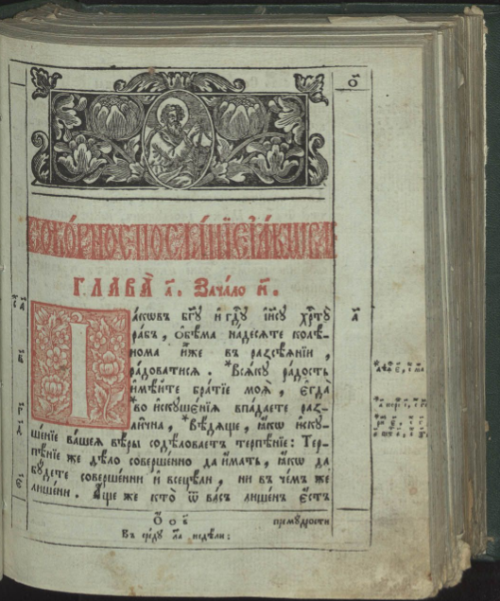 СОБО́РНОЕ ПОСЛА́НЇЕ І҆А́КѠВЛЕ
ГЛАВА̀ а҃. Зача́ло н҃.
І҆а́кѡвъ бг҃ꙋ и҆ гдⷭ҇ꙋ і҆и҃сꙋ хрⷭ҇тꙋ̀
ра́бъ, ѻ҆бѣ́ма на́десѧте колѣ́-
нома и҆̀же въ разсѣ́ѧнїи,
ра́доватисѧ. *Всѧ́кꙋ ра́дость
и҆мѣ́йте бра́тїе моѧ̑, є҆гда̀
*во и҆скꙋшє́нїѧ впа́даете раз-
ли̑чна, *Вѣ́дѧще, ꙗ҆́кѡ и҆скꙋ-
ше́нїе ва́шеѧ вѣ́ры содѣ́ловаетъ терпѣ́нїе: Тер-
пѣ́нїе же дѣ́ло соверше́нно да и҆́мать, ꙗ҆́кѡ да
бꙋ́дете соверше́нни и҆ всецѣ́ли, ни въ че́мъ же
лише́ни. А҆́ще же кто̀ ѿ ва́съ лише́нъ є҆́сть
премꙋ́дрости
Въ сре́дꙋ л҃а недѣ́ли: